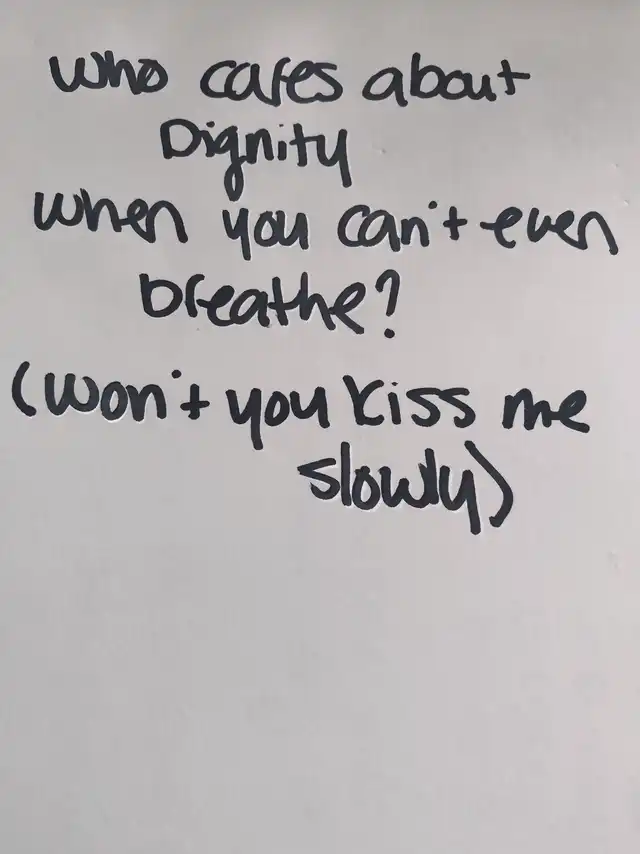 who cares about
Dignity
when you can't even
breathe?
(won't you kiss me
slowly)